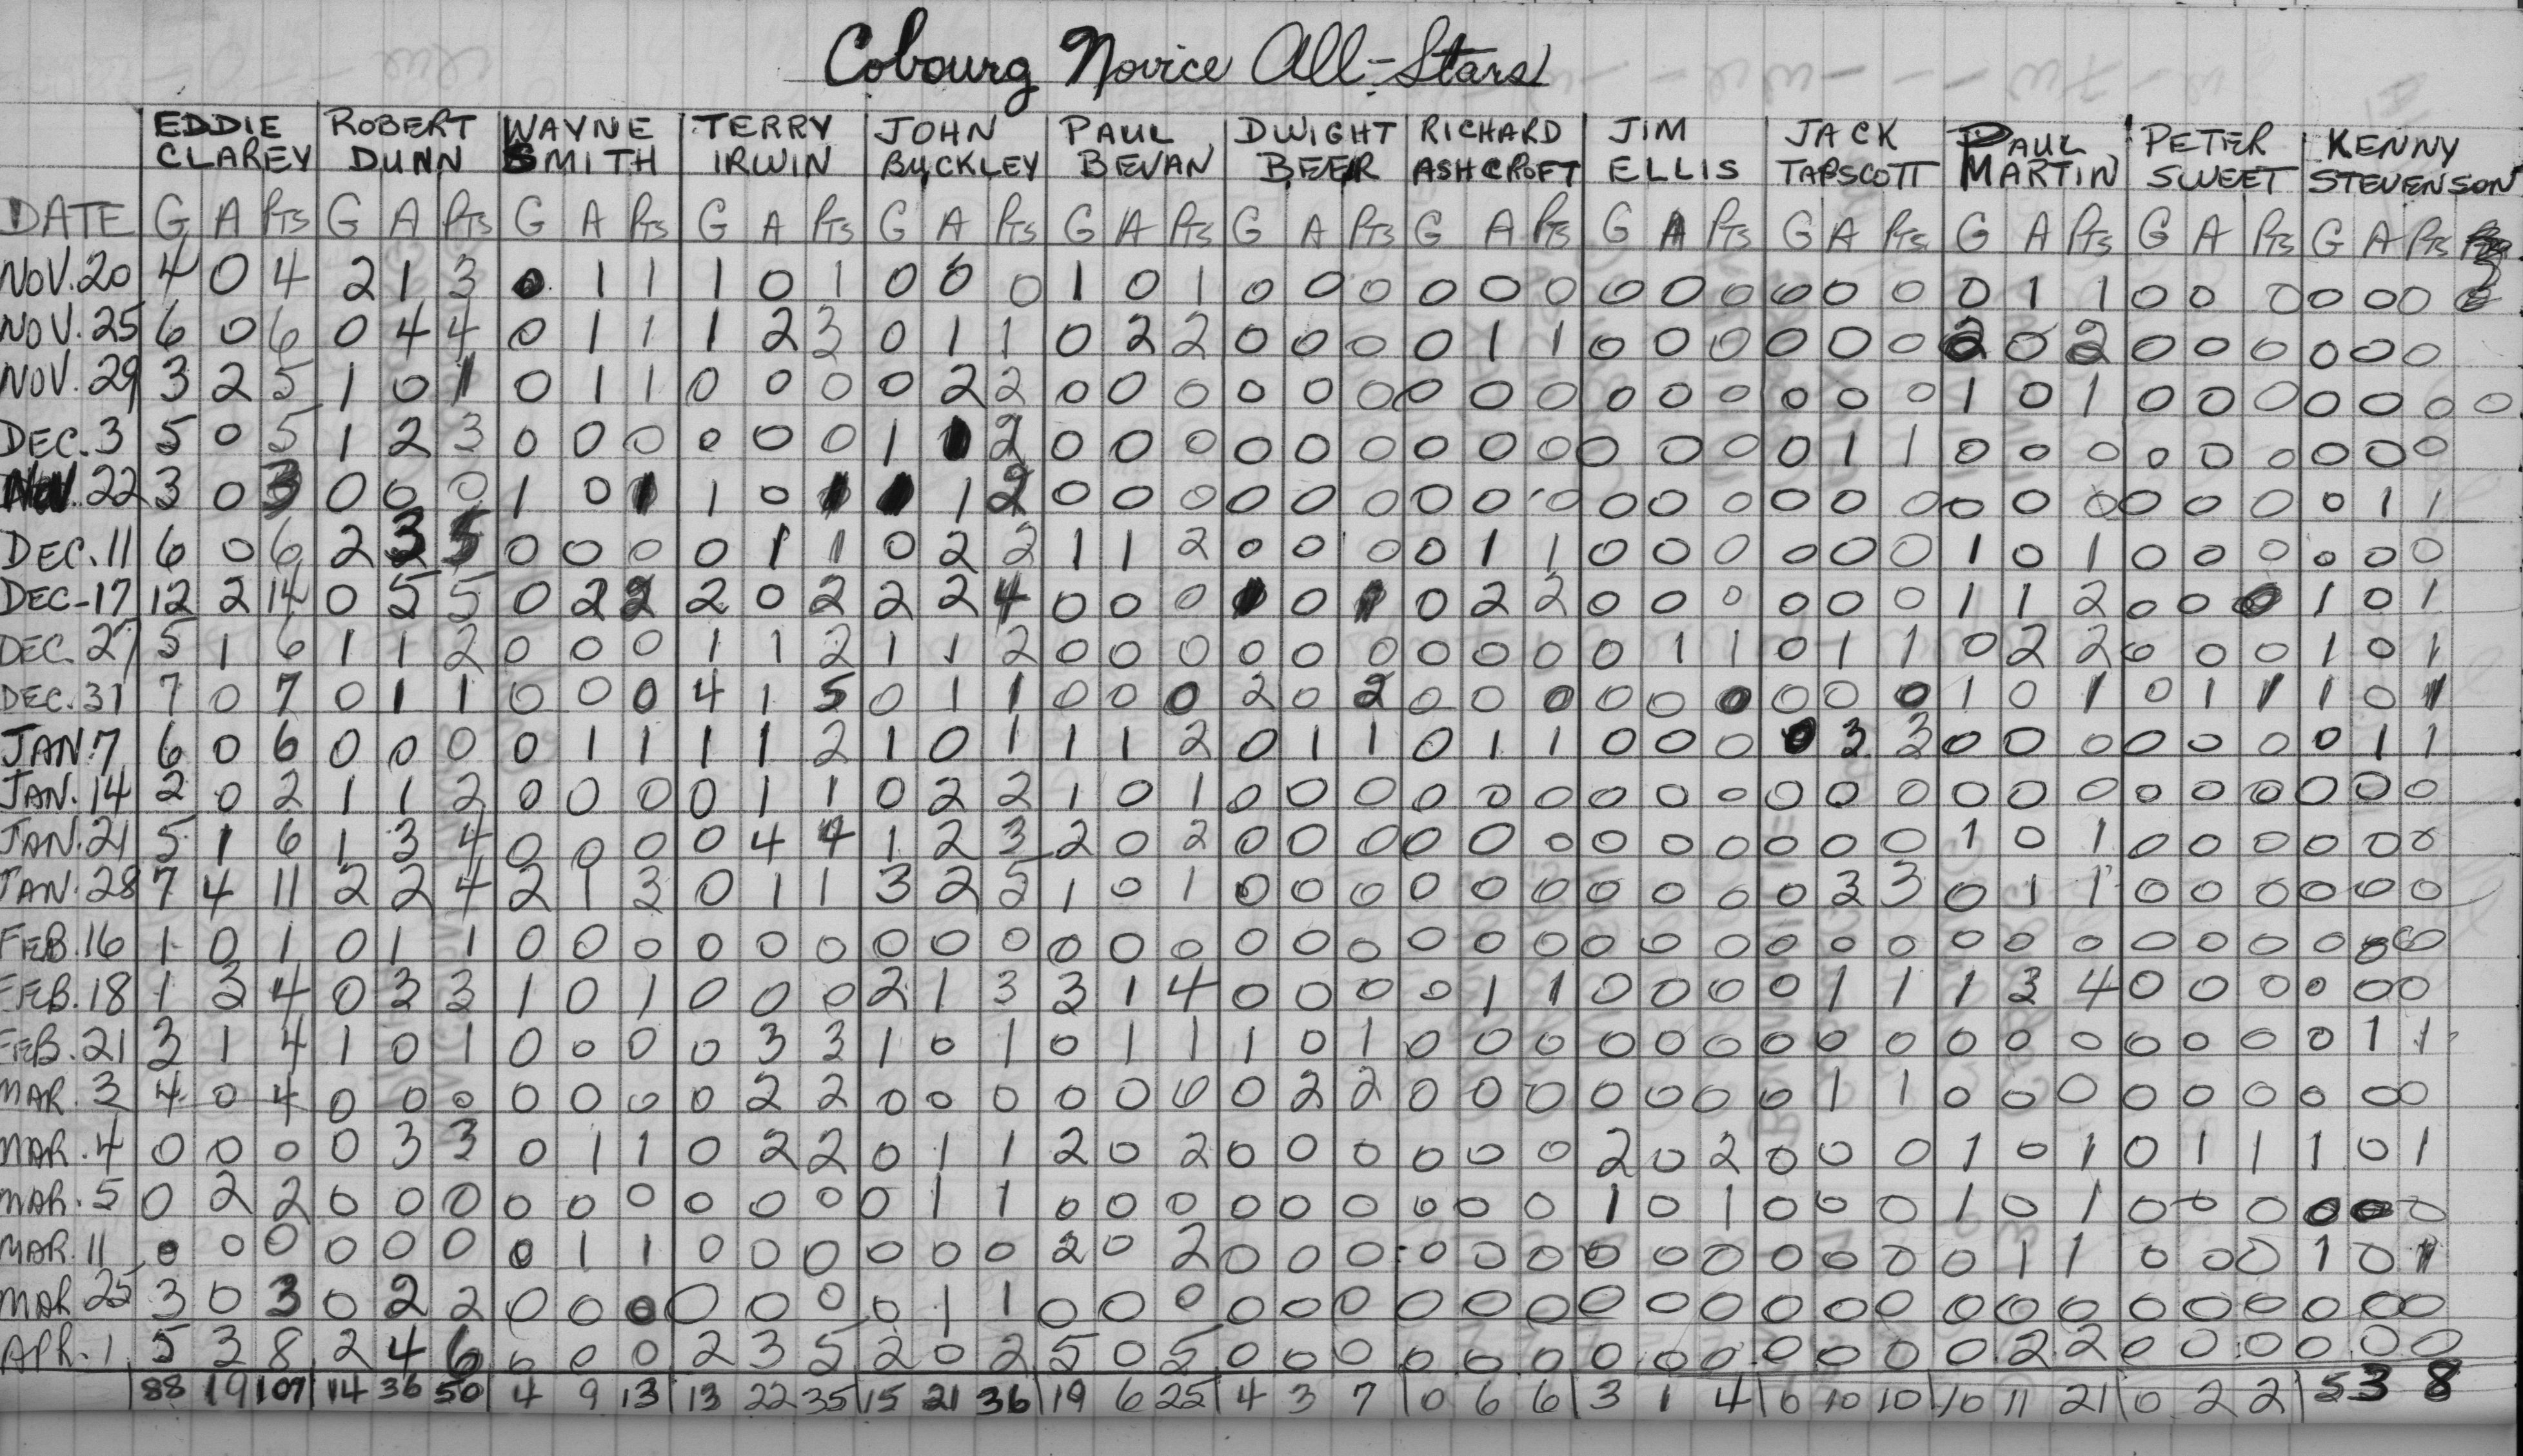 Cobourg Novice All-Stars
EDDIE ROBERT WAYNE TERRY JOHN PAUL DWIGHT RICHARD JIM JACK PAUL PETER KENNY
CLAREY DUNN SMITH IRWIN BUCKLEY BEVAN BEER ASHCROFT ELLIS TAPSCOTT MARTIN SWEET STEVENSON
DATE G A PTS G A PTS G A PTS G A PTS G A PTS G A PTS G A PTS G A PTS G A PTS G A PTS G A PTS G A PTS G A PTS
NOV. 20 4 0 4 2 1 3 0 1 1 1 0 1 0 0 0 1 0 1 0 0 0 0 0 0 0 0 0 0 0 0 0 1 1 0 0 0 0 0 0
NOV. 25 6 0 6 0 4 4 0 1 1 1 2 3 0 1 1 0 2 2 0 0 0 0 1 1 0 0 0 0 0 0 2 0 2 0 0 0 0 0 0
NOV. 29 3 2 5 1 0 1 0 1 1 0 0 0 0 2 2 0 0 0 0 0 0 0 0 0 0 0 0 0 0 0 1 0 1 0 0 0 0 0 0 0
DEC. 3 5 0 5 1 2 3 0 0 0 0 0 0 1 1 2 0 0 0 0 0 0 0 0 0 0 0 0 0 1 1 0 0 0 0 0 0 0 0 0
NOV. 22 3 0 3 0 0 0 1 0 1 1 0 1 1 1 2 0 0 0 0 0 0 0 0 0 0 0 0 0 0 0 0 0 0 0 0 0 0 1 1
DEC. 11 6 0 6 2 3 5 0 0 0 0 1 1 0 2 2 1 1 2 0 0 0 0 1 1 0 0 0 0 0 0 1 0 1 0 0 0 0 0 0
DEC-17 12 2 14 0 5 5 0 2 2 2 0 2 2 2 4 0 0 0 1 0 1 0 2 2 0 0 0 0 0 0 1 1 2 0 0 0 1 0 1
DEC. 27 5 1 6 1 1 2 0 0 0 1 1 2 1 1 2 0 0 0 0 0 0 0 0 0 0 1 1 0 1 1 0 2 2 0 0 0 1 0 1
DEC. 31 7 0 7 0 1 1 0 0 0 4 1 5 0 1 1 0 0 0 2 0 2 0 0 0 0 0 0 0 0 0 1 0 1 0 1 1 1 0 1
JAN. 7 6 0 6 0 0 0 0 1 1 1 1 2 1 0 1 1 1 2 0 1 1 0 1 1 0 0 0 0 3 3 0 0 0 0 0 0 0 1 1
JAN. 14 2 0 2 1 1 2 0 0 0 0 1 1 0 2 2 1 0 1 0 0 0 0 0 0 0 0 0 0 0 0 0 0 0 0 0 0 0 0 0
JAN. 21 5 1 6 1 3 4 0 0 0 0 4 4 1 2 3 2 0 2 0 0 0 0 0 0 0 0 0 0 0 0 1 0 1 0 0 0 0 0 0
JAN. 28 7 4 11 2 2 4 2 1 3 0 1 1 3 2 5 1 0 1 0 0 0 0 0 0 0 0 0 0 3 3 0 1 1 0 0 0 0 0 0
FEB. 16 1 0 1 0 1 1 0 0 0 0 0 0 0 0 0 0 0 0 0 0 0 0 0 0 0 0 0 0 0 0 0 0 0 0 0 0 0 0 0
FEB. 18 1 3 4 0 3 3 1 0 1 0 0 0 2 1 3 3 1 4 0 0 0 0 1 1 0 0 0 0 1 1 1 3 4 0 0 0 0 0 0
FEB. 21 3 1 4 1 0 1 0 0 0 0 3 3 1 0 1 0 1 1 1 0 1 0 0 0 0 0 0 0 0 0 0 0 0 0 0 0 0 1 1
MAR. 3 4 0 4 0 0 0 0 0 0 0 2 2 0 0 0 0 0 0 0 2 2 0 0 0 0 0 0 0 1 1 0 0 0 0 0 0 0 0 0
MAR. 4 0 0 0 0 3 3 0 1 1 0 2 2 0 1 1 2 0 2 0 0 0 0 0 0 2 0 2 0 0 0 1 0 1 0 1 1 1 0 1
MAR. 5 0 2 2 0 0 0 0 0 0 0 0 0 0 1 1 0 0 0 0 0 0 0 0 0 1 0 1 0 0 0 1 0 1 0 0 0 0 0 0
MAR. 11 0 0 0 0 0 0 0 1 1 0 0 0 0 0 0 2 0 2 0 0 0 0 0 0 0 0 0 0 0 0 0 1 1 0 0 0 1 0 1
MAR 25 3 0 3 0 2 2 0 0 0 0 0 0 0 1 1 0 0 0 0 0 0 0 0 0 0 0 0 0 0 0 0 0 0 0 0 0 0 0 0
APR. 1 5 3 8 2 4 6 0 0 0 2 3 5 2 0 2 5 0 5 0 0 0 0 0 0 0 0 0 0 0 0 0 2 2 0 0 0 0 0 0
88 19 107 14 36 50 4 9 13 13 22 35 15 21 36 19 6 25 4 3 7 0 6 6 3 1 4 0 10 10 10 11 21 0 2 2 5 3 8